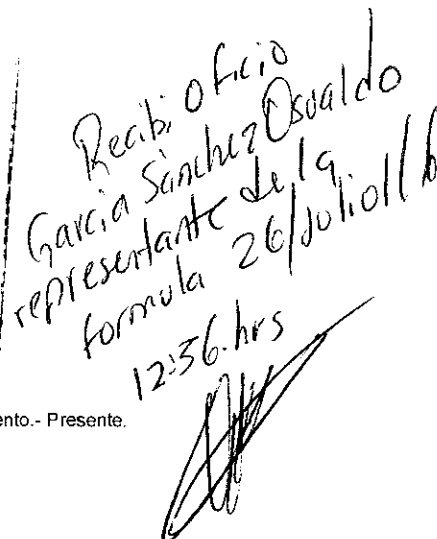 Recibi oficio
Garcia Sánchez Osvaldo
representante de la
formula 26/Julio/16
12:56.hrs
ento.- Presente.